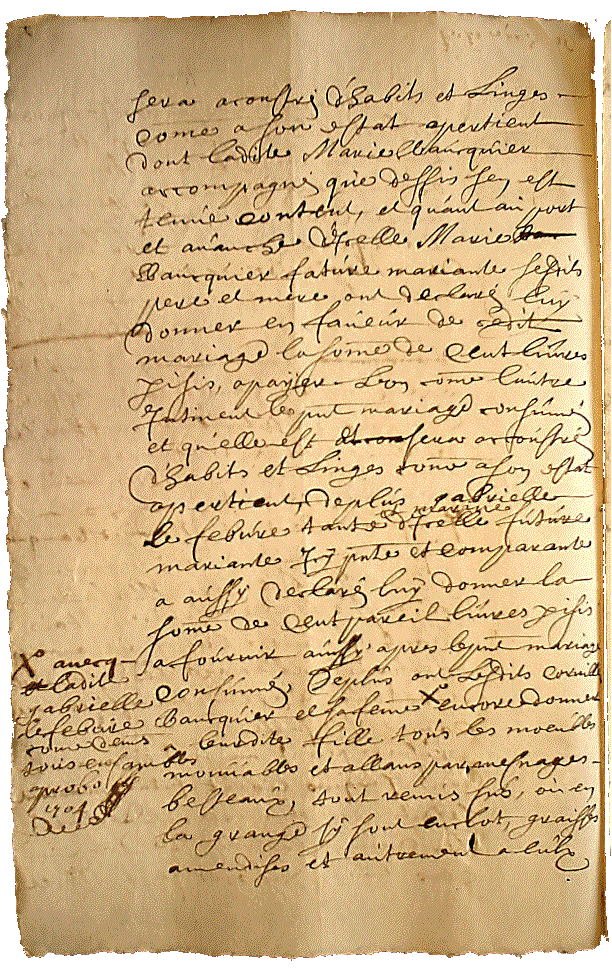 sera acoustré d'habits et Linges
come a son estat apertient
dont ladite Marie Bauequier
accompagné que dessus sen est
tenue content, et quant au port
et auanche d'Icelle Marie Bau
Bauequier future mariante sesdits
pere et mere ont declaré luy
donner en faueur de cedit
mariage la some de Cent liures
a payer Lun come lautre
le pnt mariage consumé
et quelle est et con sera acoustré
d'habits et Linges come a son estat
apertient, deplus gabrielle
le febure tante d'Icelle future
et marine
mariante Icy pnte et comparante
a aussy declaré luy donner la
some de Cent pareil liures
a fournir aussy apres le pnt mariage
Consumé, Deplus ont Lesdits
Bauequier et sa feme X° encore donner
a leurdite fille tous les moeubles
mouuables et allans par mesnages
besteaux, tout remis sus, ou en
la grange sy sont enclot, graisses
amendises et autrement a culx
X° auecq
ladite
gabrielle
lefebure
come deuis
tous ensambles
aprobo
1704